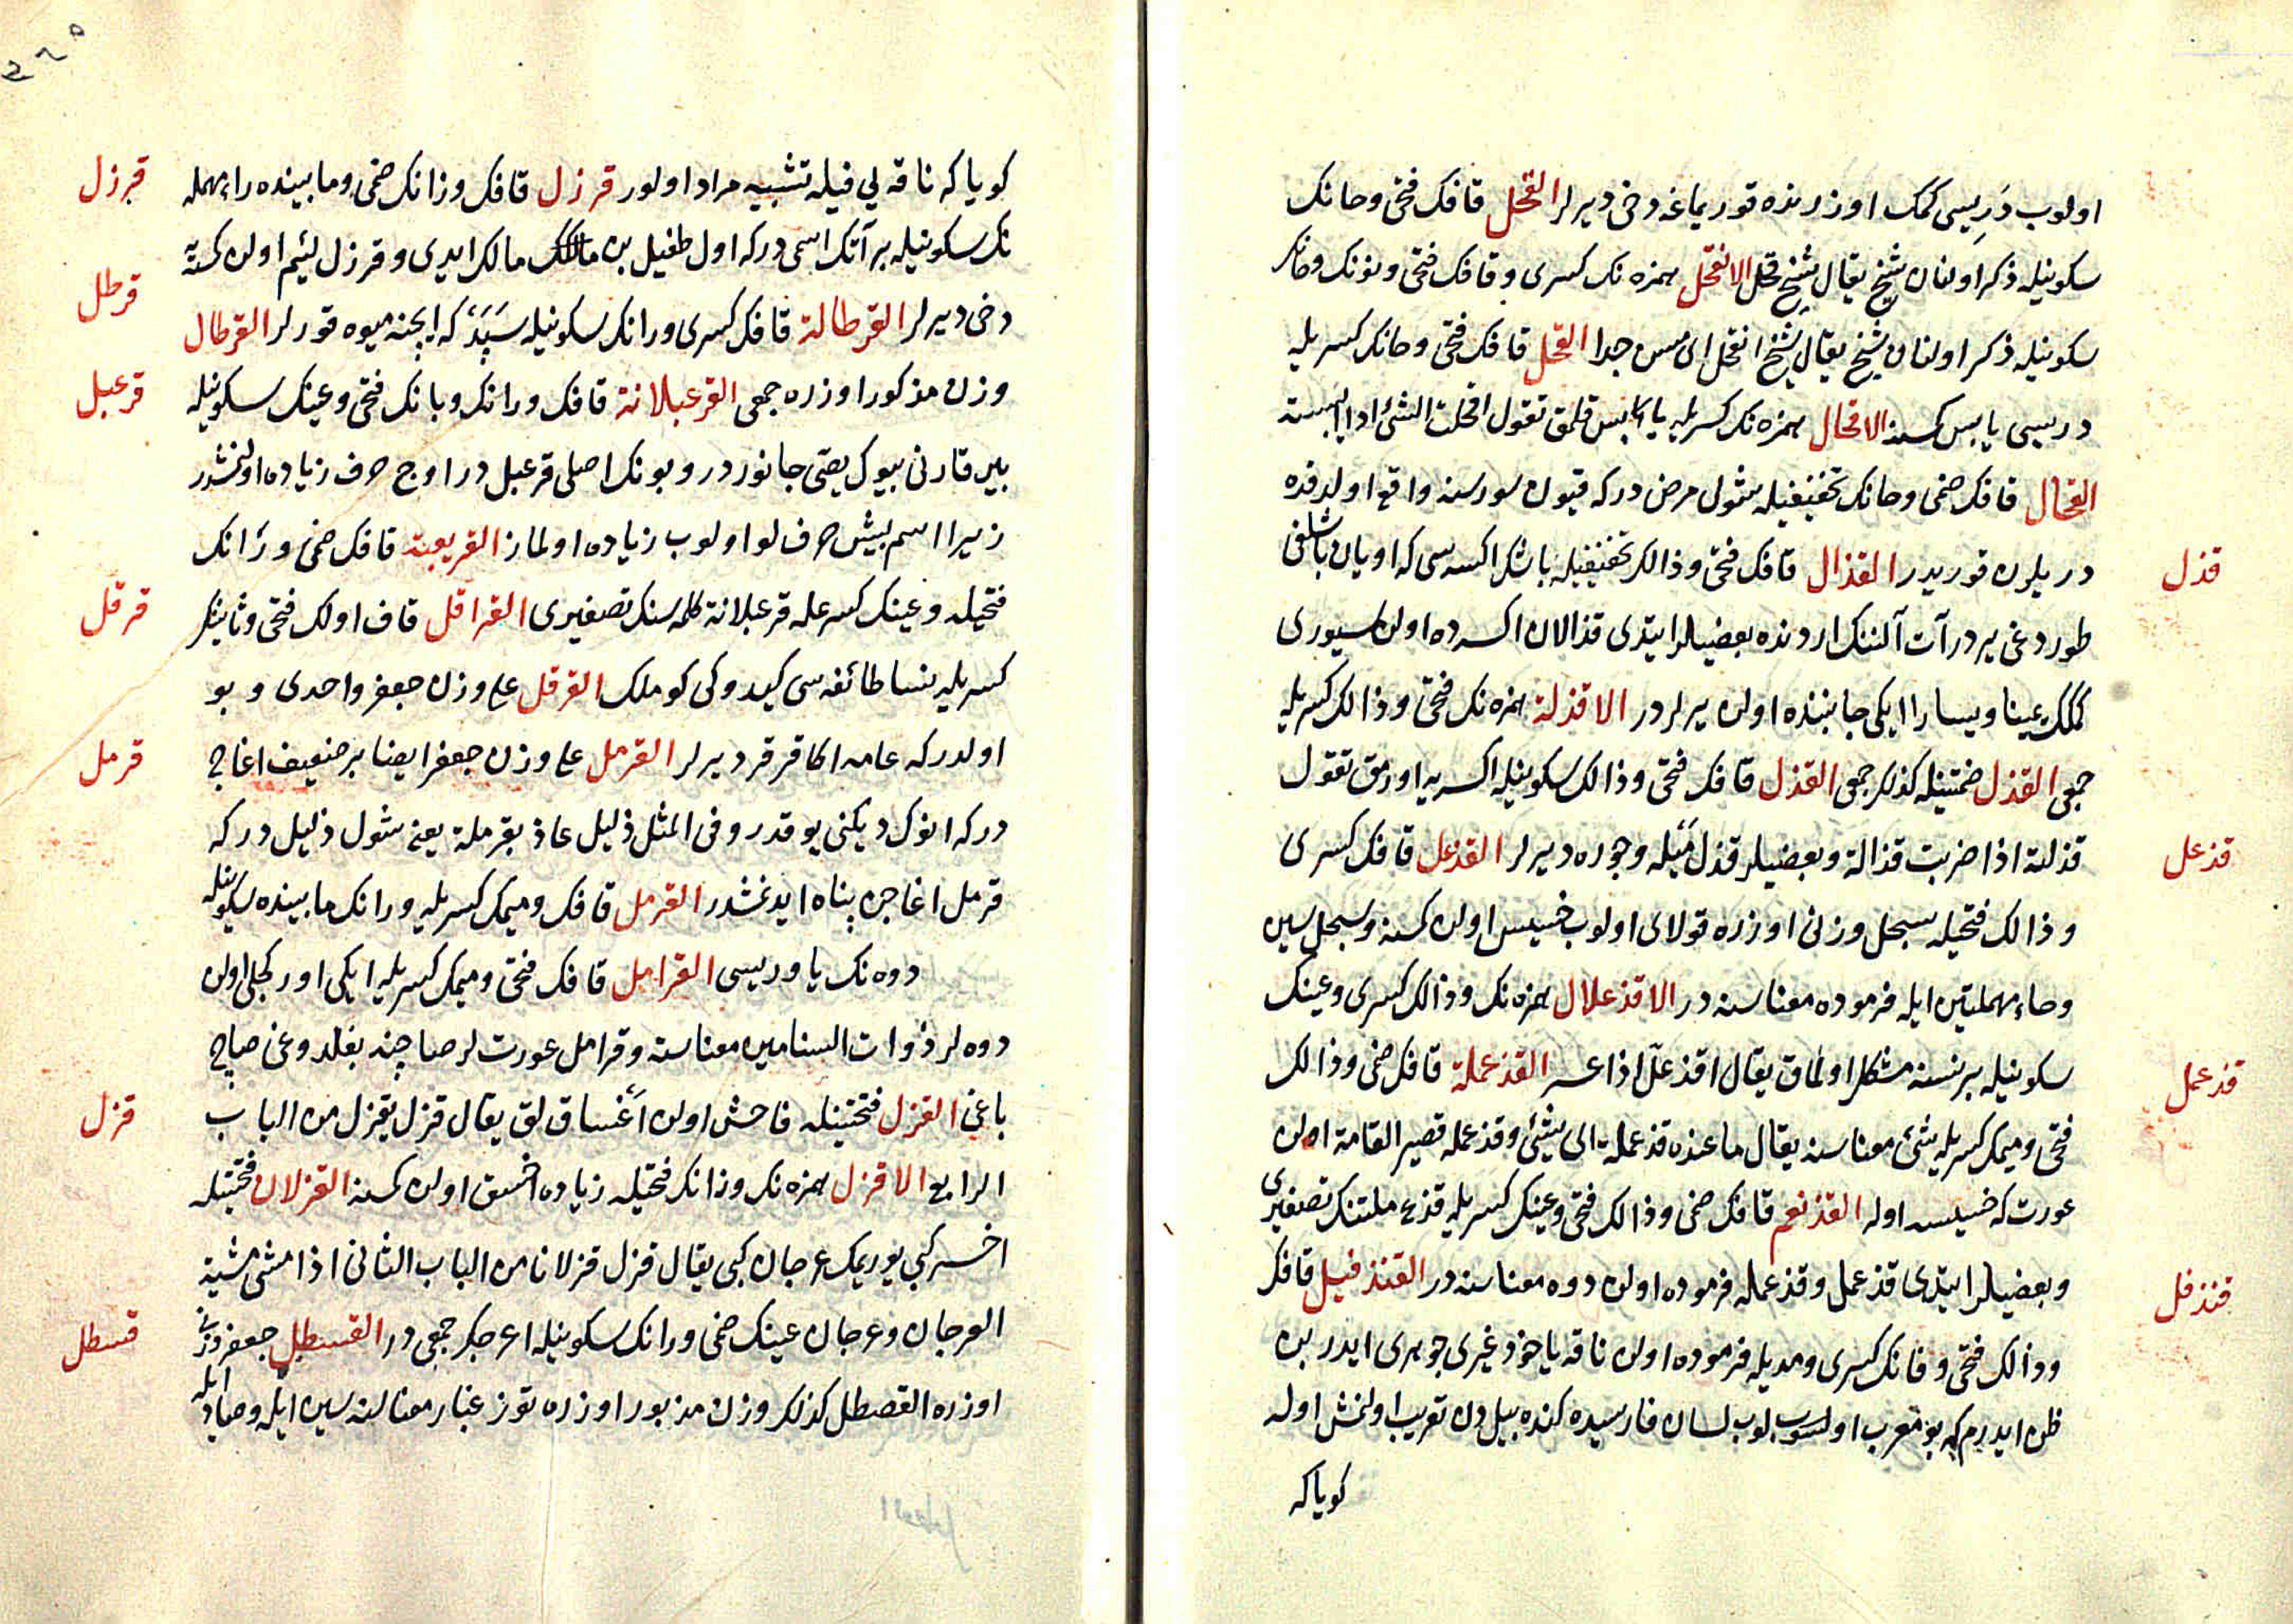 اولوب دَرِیسی كمك اوزرنده قوریماغه دخی دیرلر القحل قافك فتحی وحانك
سكونیله ذكر اولنان شیخ یقال شیخ قحل الانقحل همزه نك كسری وقافك فتحی ونونك وحانك
سكونیله ذكر اولنان شیخ یقال شیخ انقحل ای مسن جدا القحل قافك فتحی وحانك كسریله
دریسی یابس كمسنه الاقحال همزه نك كسریله یابس قلمق تقول اقحلت الشئ اذا ایبسته
القحال قافك ضمی وحانك تخفیفیله شول مرض دركه قیون سورسنه واقع اولدقده
دریلرن قوریدر القذال قافك فتحی وذالك تخفیفیله باشك اكسه سی كه اویان باشلغی
قذل
طوردغی یردر آت آلننك اردنده بعضیلر ایتدی قذالان اكسه ده اولن سیوری
كمكك یمینا ویسارا ایكی جانبنده اولن یرلردر الاقذلة همزه نك فتحی وذالك كسریله
جمعی القذل ضمتینله كذلك جمعی القذل قافك فتحی وذالك سكونیله اكسه یه اورمق تقول
قذلته اذا ضربت قذاله وبعضیلر قذل مَیْله وجوره دیرلر القذعل قافك كسری
قذعل
وذالك فتحیله سبحل وزنی اوزره قولای اولوب خسیس اولن كمسنه وسبحل سین
وحاء مهملتین ایله فرموده معناسنه در الاقذعلال همزه نك وذالك كسری وعینك
سكونیله بر نسنه مشكل اولماق یقال اقذعلّ اذا عسر القذعملة قافك ضمی وذالك
قذعمل
فتحی ومیمك كسریله شئ معناسنه یقال ما عنده قذعملة ای شیئ وقذعمله قصیر القامة اولن
عورت كه خسیسه اوله القذیعم قافك ضمی وذالك فتحی وعینك كسریله قذعملتنك تصغیری
وبعضیلر ایتدی قذعمل وقذعمله فرموده اولن دوه معناسنه در القنذفیل قافك
قنذفل
وذالك فتحی وفانك كسری ومدیله فرموده اولن ناقه یاخود غیری جوهری ایدر بن
ظن ایدرم كه بو معرب اولوب لسان فارسیده كنده بیل دن تعریب اولنمش اوله
كویاكه
كویاكه ناقه یی فیله تشبیه مراد اولور قرزل قافك وزانك ضمی ومابینده راء مهمله
قرزل
نك سكونیله بر آتك اسمی دركه اول طفیل بن مالك مالك ایدی وقرزل لئیم اولن كمسنه یه
دخی دیرلر القرطالة قافك كسری ورانك سكونیله سَپَدْ كه ایچنه میوه قورلر القرطال
قرطل
وزن مذكور اوزره جمعی القرعبلانة قافك ورانك وبانك فتحی وعینك سكونیله
قرعبل
بین قارنی بیوك یصی جانوردر وبونك اصلی قرعبل در اوج حرف زیاده اولنمشدر
زیرا اسم بیش حرفلو اولوب زیاده اولماز القریعبة قافك ضمی ورانك
فتحیله وعینك كسرعله قرعبلانة كلمه سنك تصغیری القراقل قاف اولك فتحی وثانینك
قرقل
كسریله نسا طائفه سی كیدوكی كوملك القرقل علی وزن جعفر واحدی وبو
اولدركه عامه اكا قرقر دیرلر القرمل علی وزن جعفر ایضا بر ضعیف اغاجی
قرمل
دركه انوك دیكنی یوقدر وفی المثل ذلیل عاذ بقرملة یعنی شول ذلیل دركه
قرمل اغاجن پناه ایدنمشدر القرمل قافك ومیمك كسریله ورانك مابینده سكونیله
دوه نك یاوریسی القرامل قافك فتحی ومیمك كسریله ایكی اوركجلی اولن
دوه لر ذوات السنامین معناسنه وقرامل عورتلر صاچنه بغلدوغی صاچ
باغی القزل فتحتینله فاحش اولن اَغْساقلق یقال قزل یقزل من الباب
قزل
الرابع الاقزل همزه نك وزانك فتحیله زیاده اخسق اولن كمسنه القزلان فتحتینله
اخسر كبی یوریمك عرجان كبی یقال قزل قزلانا من الباب الثانی اذا مشی مشیة
العرجان وعرجان عینك ضمی ورانك سكونیله اعرجك جمعی در القسطل جعفر وزنی
قسطل
اوزره القصطل كذلك وزن مزبور اوزره توز غبار معناسنه سین ایله وصاد ایله